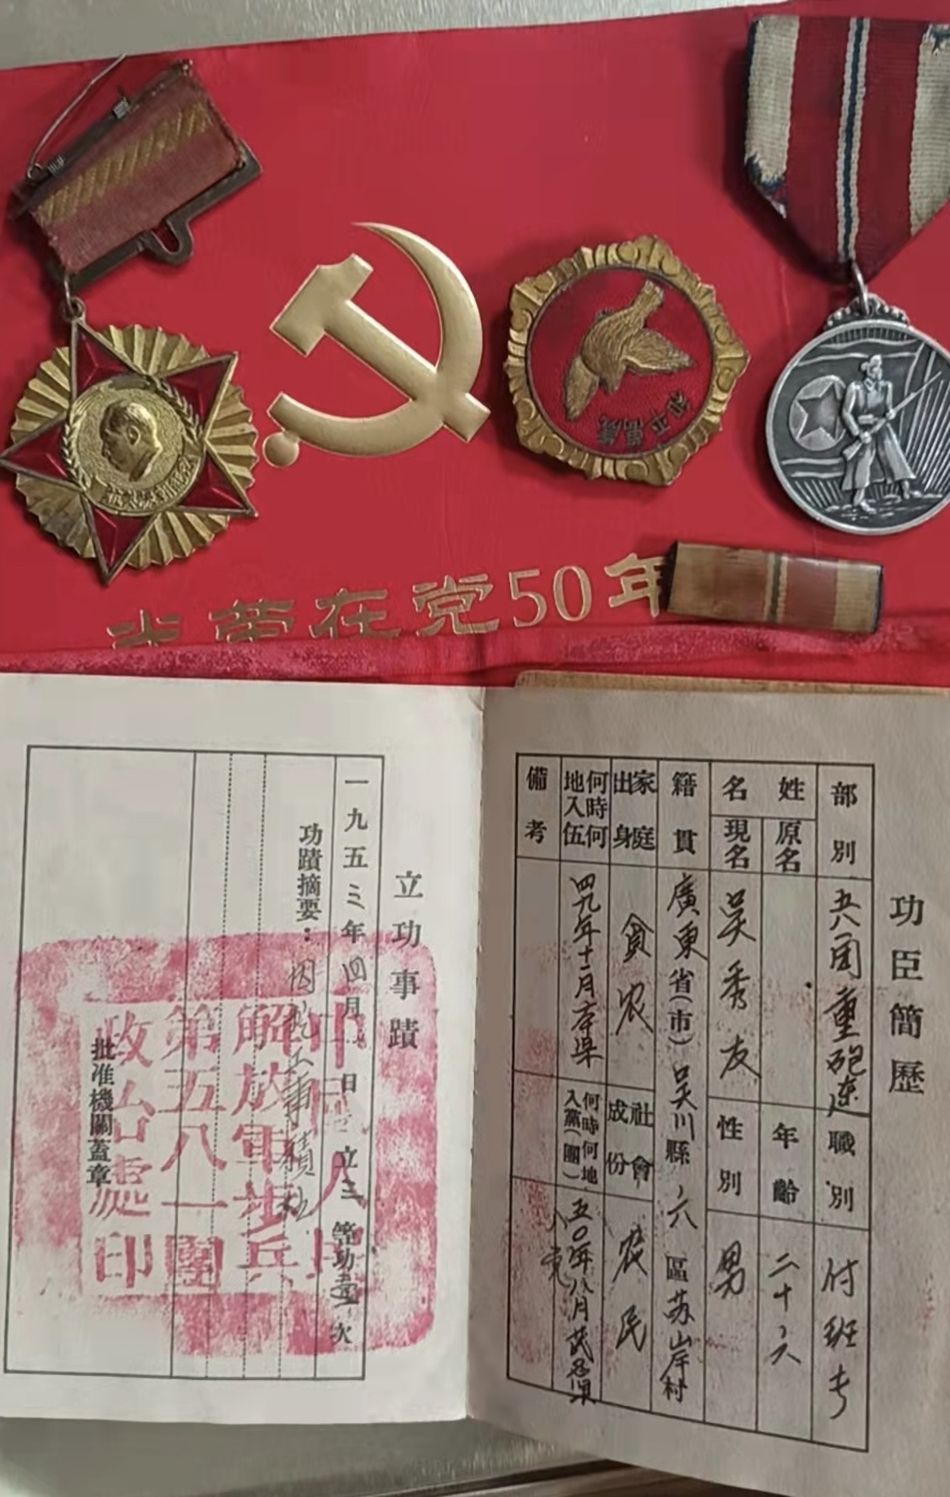 光荣在党50年
和平萬歲
功臣簡歷
部別
五八一团重砲连
職別
付班长
姓名
原名
現名
吴秀友
年齡
二十六
性別
男
籍貫
廣東省(市)吴川縣六區苏岸村
家庭出身
貧农
社會成份
农民
何時何地入伍
四九年十二月
何時何地入黨(團)
五〇年八月
入党
備考
立功事蹟
一九五三年四月 日立三等功壹次
功蹟摘要:
因
事績
批准機關蓋章
中國人民
解放軍步兵
第五八一團
政治處印